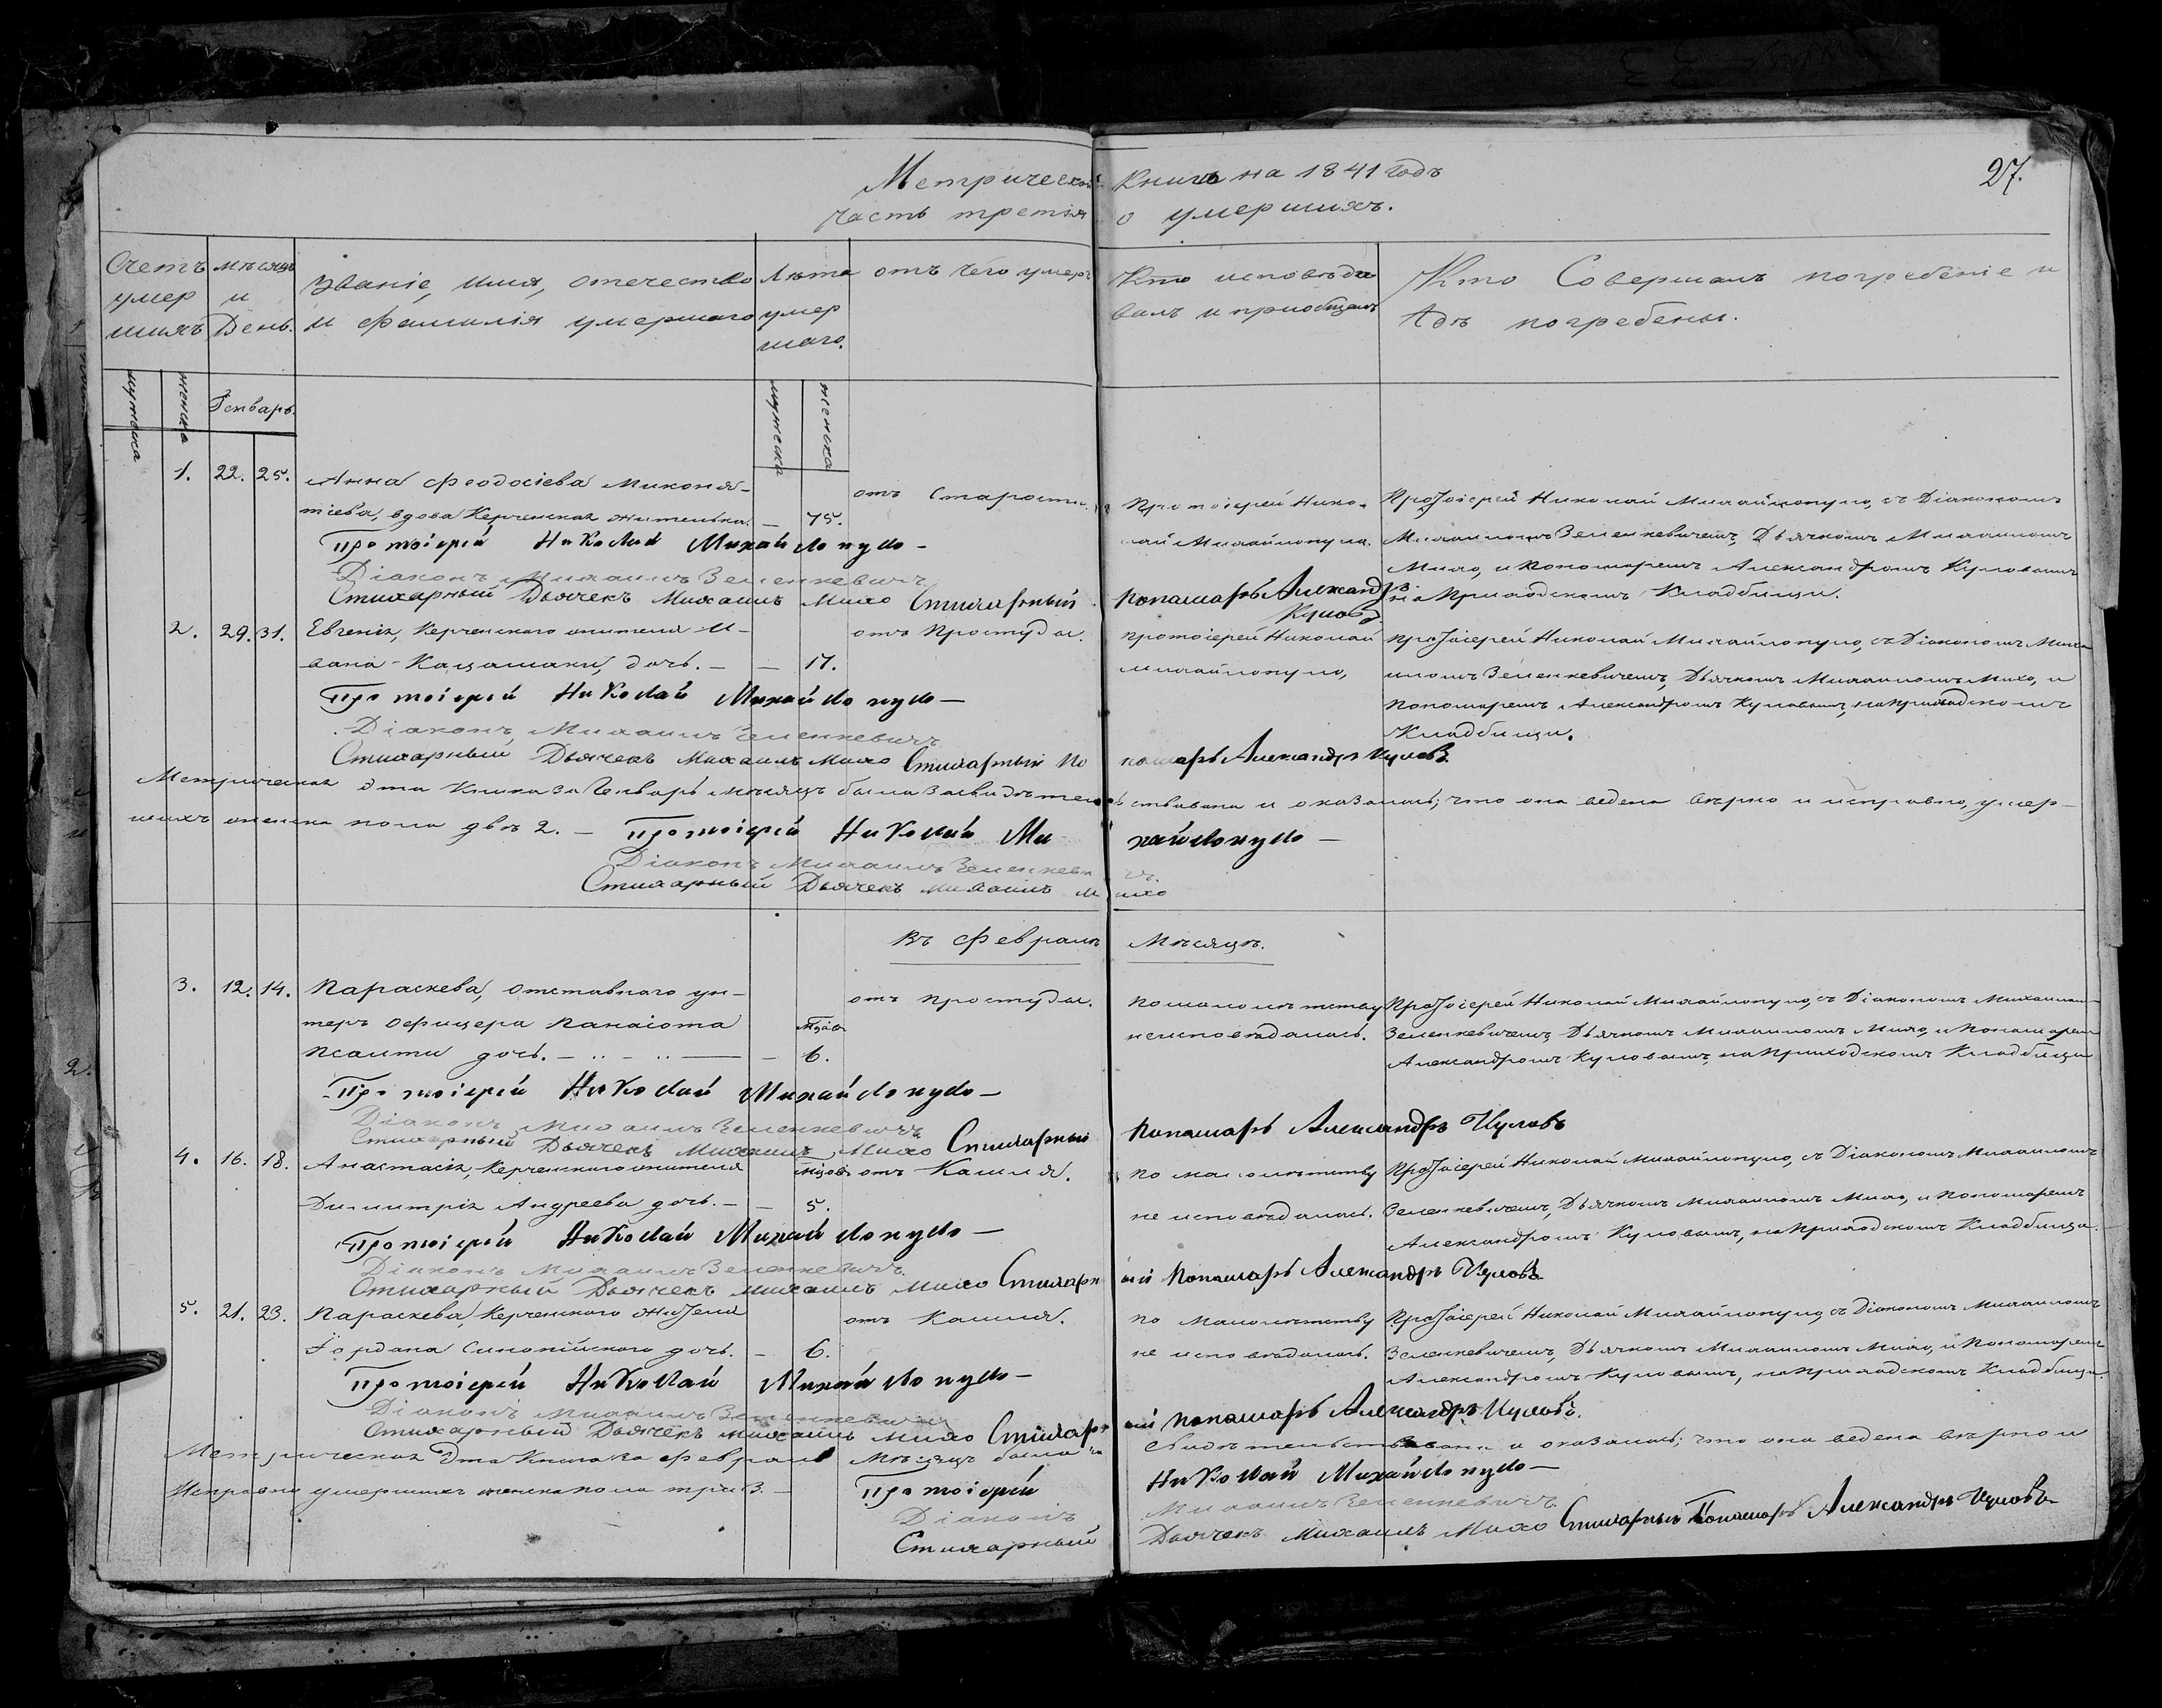 27.
Метрической книги на 1841 годъ
часть третія о умершихъ.
Счетъ умер шихъ
мѣсяцъ и День.
Званіе, имя, отечество и фамилія умершаго
Лѣта умер шаго.
отъ чего умеръ
Кто исповѣды валъ и приобщалъ
Кто Совершалъ погребеніе и гдѣ погребены.
мужеска
женска
Генварь.
мужеска
женска
1. 22. 25.
Анна Феодосіева
вдова Керченская жителька. — 75.
отъ Старости.
Протоіерей Нико-
лай Михайлопуло.
Протоіерей Николай Михайлопуло, съ Діакономъ
Михаиломъ Зеленкевичемъ, Дьячкомъ Михаиломъ
Михо, и Пономаремъ Александромъ Куловымъ
на Приходскомъ Кладбищи.
Протоіерей Николай Михайлопуло —
Діаконъ Михаилъ Зеленкевичъ
Стихарный Дьячекъ Михаилъ Михо Стихарный Понамарь Александръ
Куловъ
2. 29. 31.
Евгенія, Керченского жителя И-
вана дочь. — — 17.
отъ Простуды.
Протоіерей Николай
Михайлопуло,
Протоіерей Николай Михайлопуло, съ Діакономъ Миха
иломъ Зеленкевичемъ, Дьячкомъ Михаиломъ Михо, и
Пономаремъ Александромъ Куловымъ, на Приходскомъ
Кладбищи.
Протоіерей Николай Михайлопуло —
Діаконъ, Михаилъ Зеленкевичъ
Стихарный Дьячекъ Михаилъ Михо Стихарный По номарь Александръ Куловъ
Метрическая эта Книга за Генварь мѣсяцъ была Засвидѣтель ствована и оказалась; что она ведена вѣрно и исправно, умер-
шихъ женска пола двѣ 2. — Протоіерей Николай Ми хайлопуло —
Діаконъ Михаилъ Зеленкеви чъ.
Стихарный Дьячекъ Михаилъ М ихо
Въ Февралѣ Мѣсяцѣ.
3. 12. 14.
Параскева, отставнаго ун-
теръ офицера Панаіота
дочь. — 6.
отъ простуды.
по малолѣтству
неисповѣдалась.
Протоіерей Николай Михайлопуло, съ Діакономъ Михаиломъ
Зеленкевичемъ, Дьячкомъ Михаиломъ Михо, и Понамаремъ
Александромъ Куловымъ, на Приходскомъ Кладбищи
Протоіерей Николай Михайлопуло —
Діаконъ, Михаилъ Зеленкевичъ
Стихарный Дьячекъ Михаилъ Михо Стихарный Понамарь Александръ Куловъ
4. 16. 18.
Анастасія, Керченского жителя
Димитрія Андреева дочь. — — 5.
отъ Кашля.
по малолѣтству
не исповѣдалась.
Протоіерей Николай Михайлопуло, съ Діакономъ Михаиломъ
Зеленкевичемъ, Дьячкомъ Михаиломъ Михо, и Пономаремъ
Александромъ Куловымъ, на Приходскомъ Кладбищи.
Протоіерей Николай Михайлопуло —
Діаконъ Михаилъ Зеленкевичъ.
Стихарный Дьячекъ Михаилъ Михо Стихарн ый Понамарь Александръ Куловъ
5. 21. 23.
Параскева, Керченского жителя
Іордана Синопійского дочь. — 6.
отъ Кашля.
по малолѣтству
не исповѣдалась.
Протоіерей Николай Михайлопуло, съ Діакономъ Михаиломъ
Зеленкевичемъ, Дьячкомъ Михаиломъ Михо, и Пономаремъ
Александромъ Куловымъ, на Приходскомъ Кладбищи.
Протоіерей Николай Михайлопуло —
Діаконъ Михаилъ Зеленкевичъ
Стихарный Дьячекъ Михаилъ Михо Стихарн ый Понамарь Александръ Куловъ.
Метрическая Эта Книга за Февраль Мѣсяцъ была за свидѣтельствована и оказалась; что она ведена вѣрно и
Исправно умершихъ женска пола три 3. — Протоіерей Николай Михайлопуло —
Діаконъ Михаилъ Зеленкевичъ.
Стихарный Дьячекъ Михаилъ Михо Стихарный Понамарь Александръ Куловъ